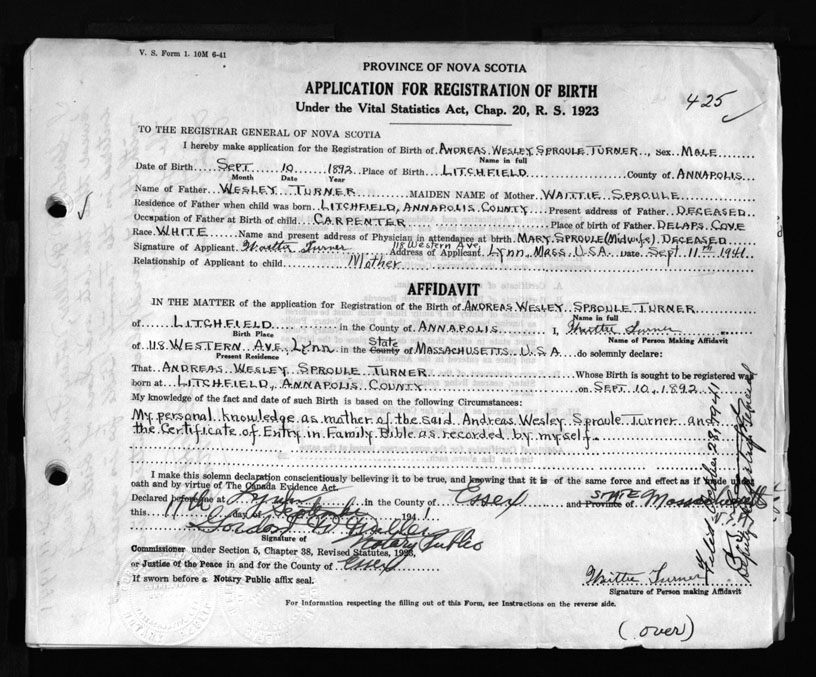 V. S. Form 1. 10M 6-41
PROVINCE OF NOVA SCOTIA
APPLICATION FOR REGISTRATION OF BIRTH
Under the Vital Statistics Act, Chap. 20, R. S. 1923
425
TO THE REGISTRAR GENERAL OF NOVA SCOTIA
I hereby make application for the Registration of Birth of ANDREAS WESLEY SPROULE TURNER, Sex MALE
Name in full
Date of Birth SEPT 10 1892 Place of Birth LITCHFIELD County of ANNAPOLIS
Month Date Year
Name of Father WESLEY TURNER MAIDEN NAME of Mother WAITTIE SPROULE
Residence of Father when child was born LITCHFIELD, ANNAPOLIS COUNTY Present address of Father DECEASED
Occupation of Father at Birth of child CARPENTER Place of birth of Father DELAPS COVE
Race WHITE Name and present address of Physician in attendance at birth MARY SPROULE (Midwife) DECEASED
Signature of Applicant Waittie Turner 118 Western Ave, Address of Applicant Lynn, Mass, U.S.A. Date Sept. 11th 1941
Relationship of Applicant to child Mother
AFFIDAVIT
IN THE MATTER of the application for Registration of the Birth of ANDREAS WESLEY SPROULE TURNER
Name in full
of LITCHFIELD in the County of ANNAPOLIS I, Waittie Turner
Birth Place Name of Person Making Affidavit
of 118 WESTERN AVE, LYNN in the County State of MASSACHUSETTS U.S.A. do solemnly declare:
Present Residence
That ANDREAS WESLEY SPROULE TURNER Whose Birth is sought to be registered was
born at LITCHFIELD, ANNAPOLIS COUNTY on SEPT 10, 1892
My knowledge of the fact and date of such Birth is based on the following Circumstances:
My personal knowledge as mother of the said Andreas Wesley Sproule Turner and
the Certificate of Entry in Family Bible as recorded by myself.
I make this solemn declaration conscientiously believing it to be true, and knowing that it is of the same force and effect as if made under
oath and by virtue of The Canada Evidence Act.
Declared before me at Lynn in the County of Essex and Province of STATE Massachusetts
this 11th day of September 1941
Gordon
Signature of Notary Public
Commissioner under Section 5, Chapter 38, Revised Statutes, 1923,
or Justice of the Peace in and for the County of Essex
If sworn before a Notary Public affix seal.
Waittie Turner
Signature of Person making Affidavit
For Information respecting the filling out of this Form, see Instructions on the reverse side.
(over)
Filed October 28, 1941
Deputy Registrar General